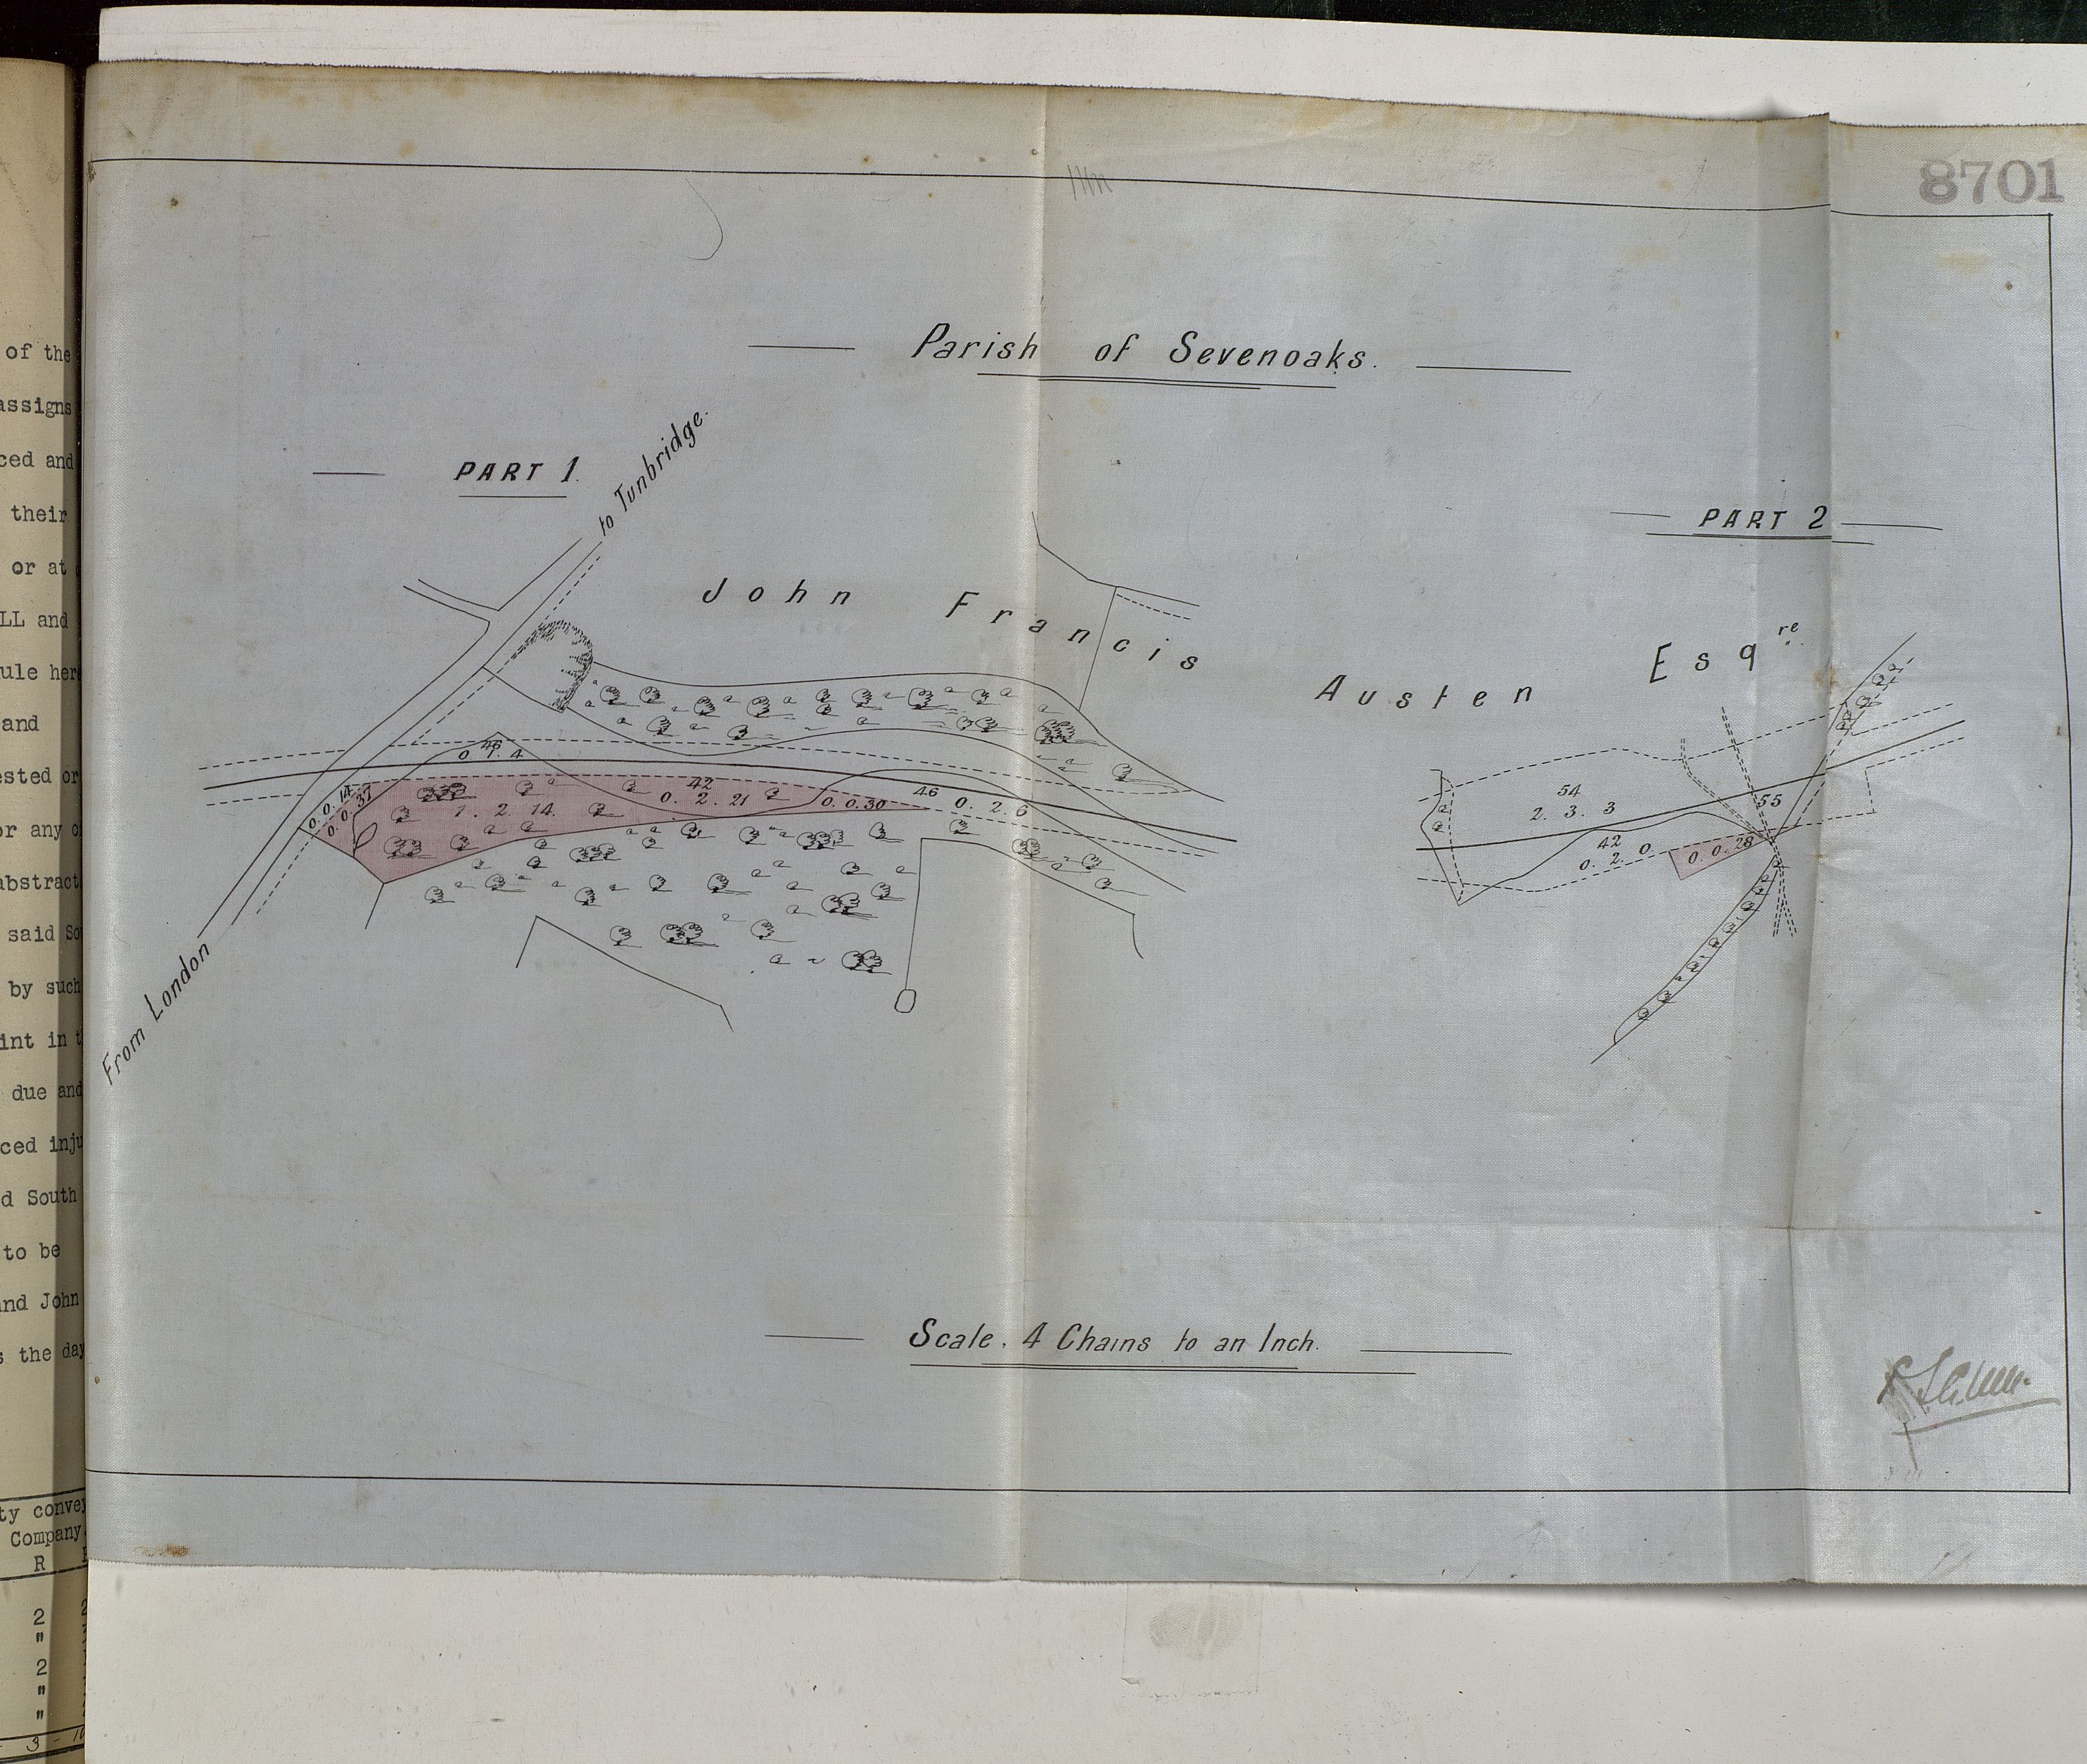 of the
assigns
ced and
their
or at
LL and
ule her
and
ested or
or any o
abstract
said So
by such
int in t
due and
ced inju
d South
to be
and John
s the day
ty convey
Company
R
2
"
2
"
"
3 - 10
8701
Parish of Sevenoaks.
PART 1.
to Tunbridge.
PART 2
John Francis Austen Esqre
46
0. 1. 4
42
0. 2. 21
1. 2. 14.
0. 0. 14
0. 0. 37
0. 0. 30
46
0. 2. 6
54
2. 3. 3
55
42
0. 2. 0
0. 0. 28
From London
Scale. 4 Chains to an Inch.